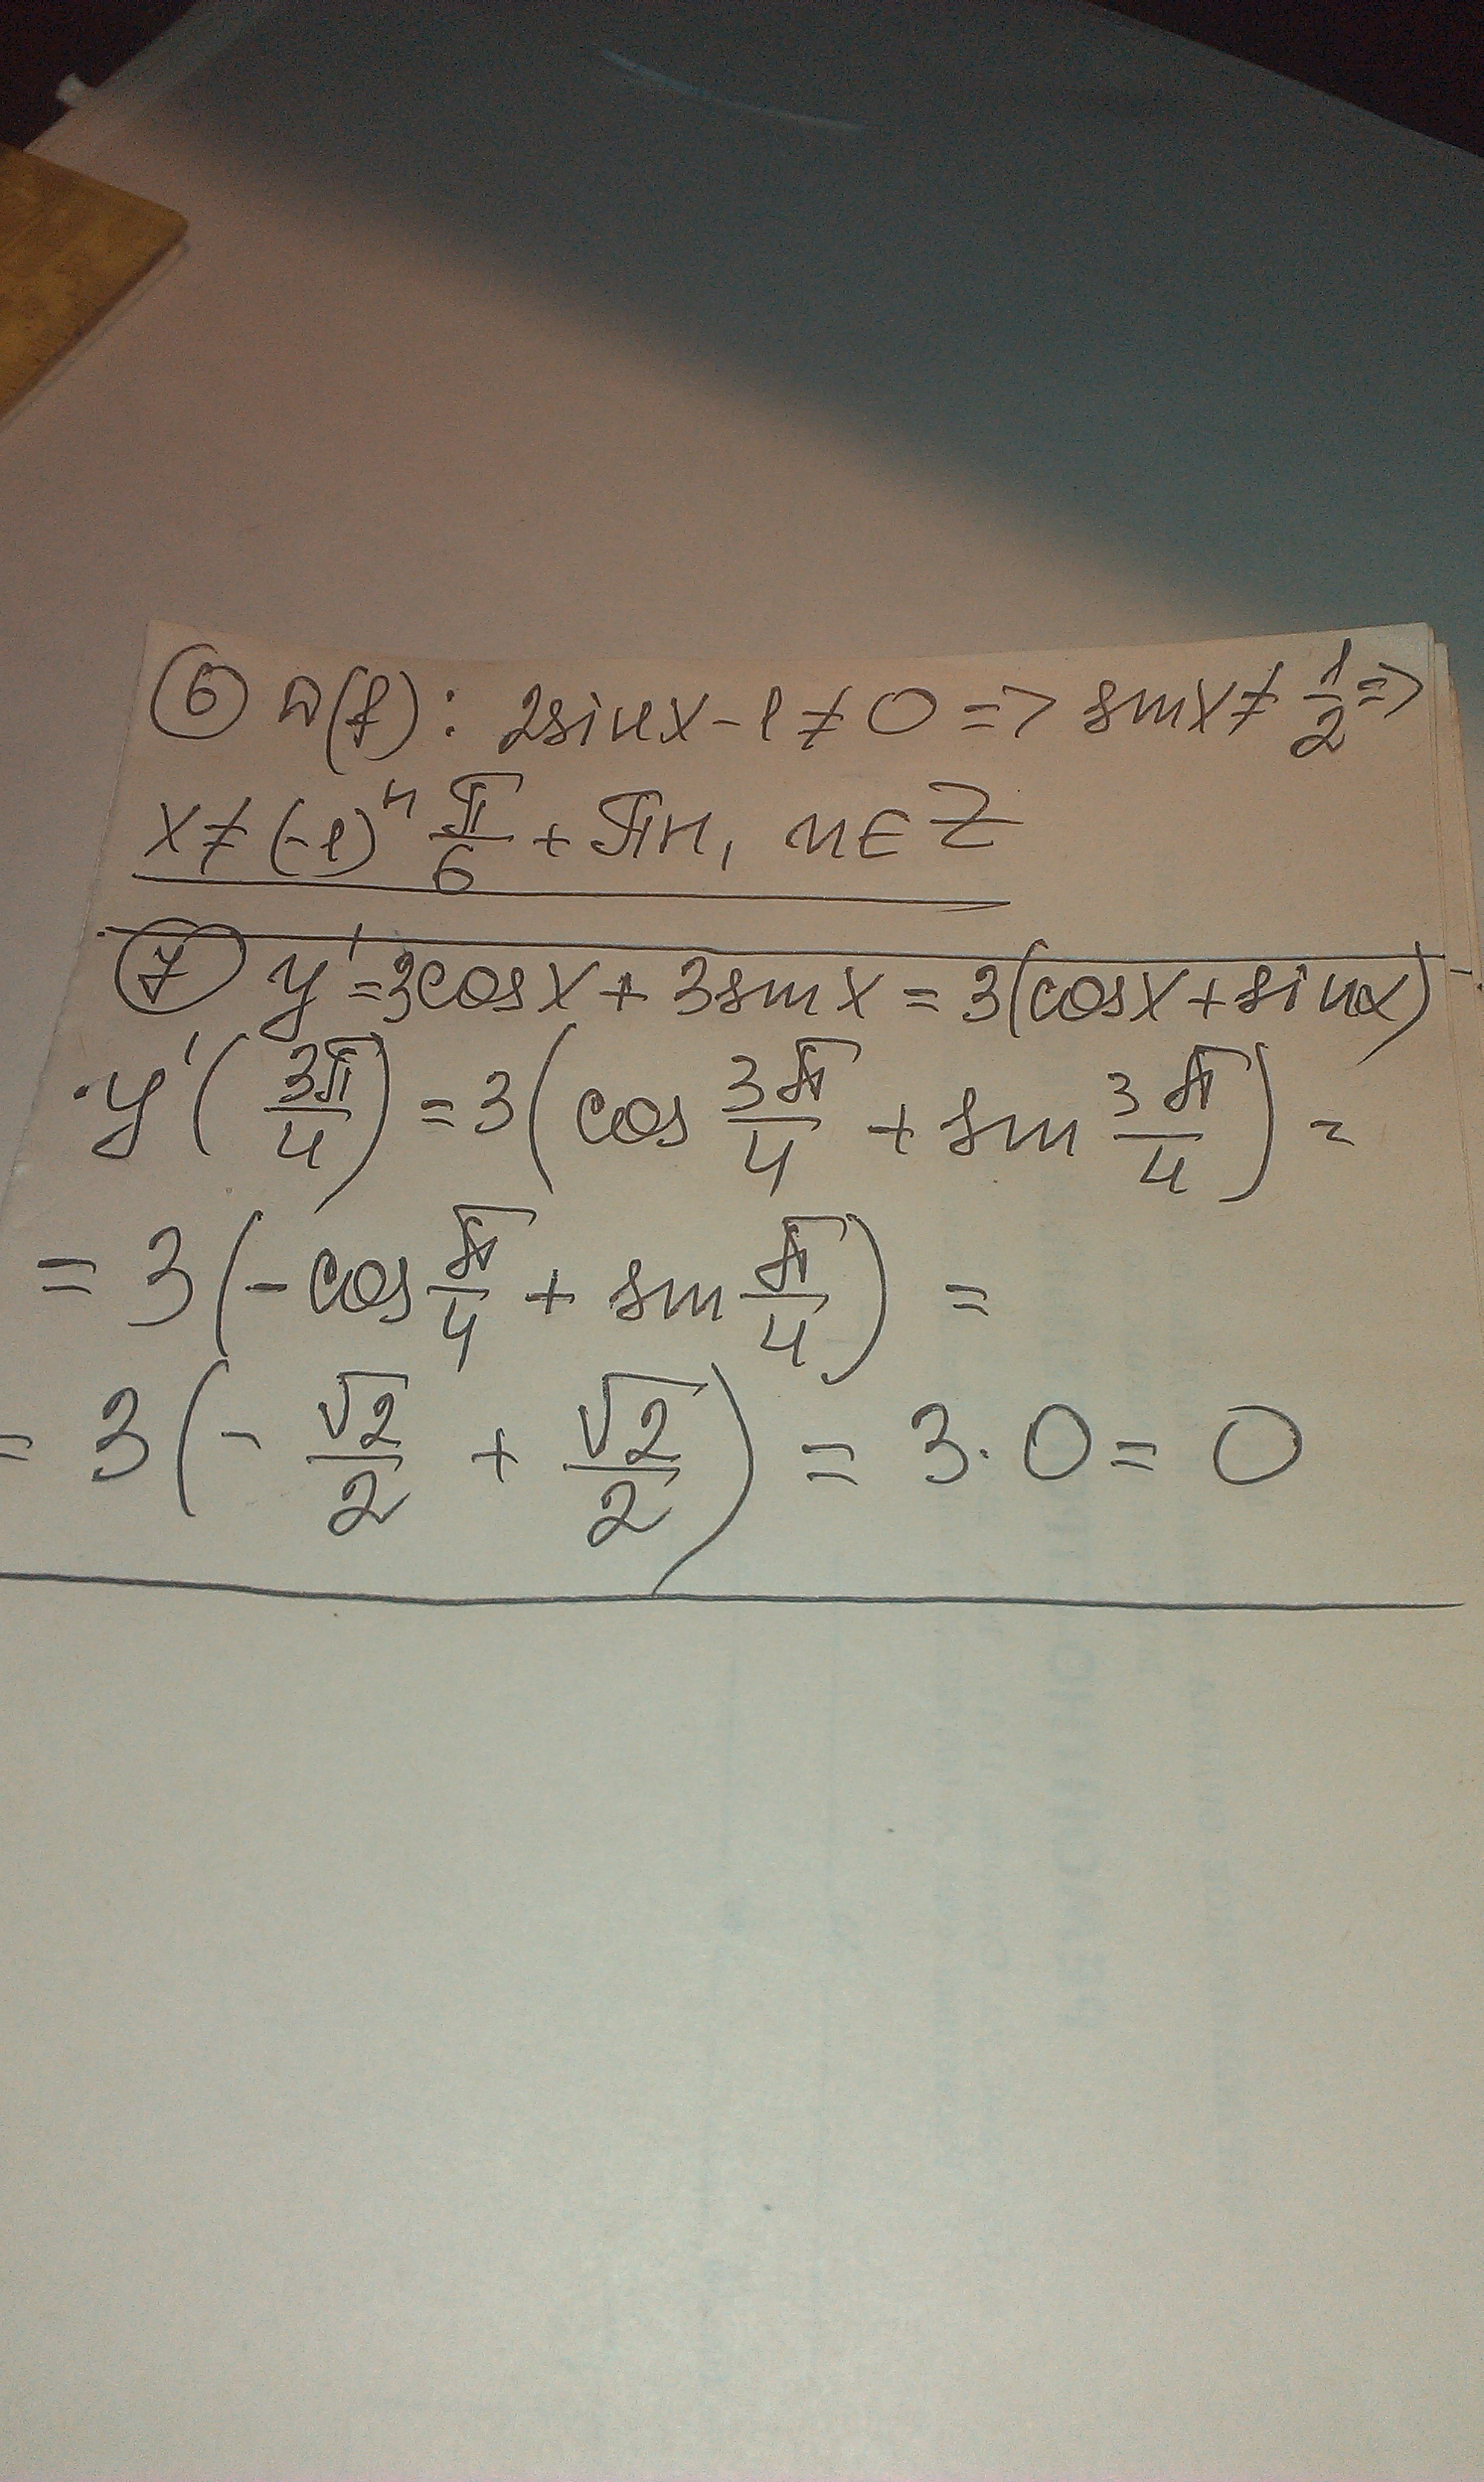 ⑥ D(f): 2sinx - 1 ≠ 0 => sinx ≠ 1/2 =>
x ≠ (-1)ⁿ π/6 + πn, n ∈ Z
⑦ y' = 3cosx + 3sinx = 3(cosx + sinx)
y'(3π/4) = 3(cos 3π/4 + sin 3π/4) =
= 3(-cos π/4 + sin π/4) =
= 3(-√2/2 + √2/2) = 3·0 = 0